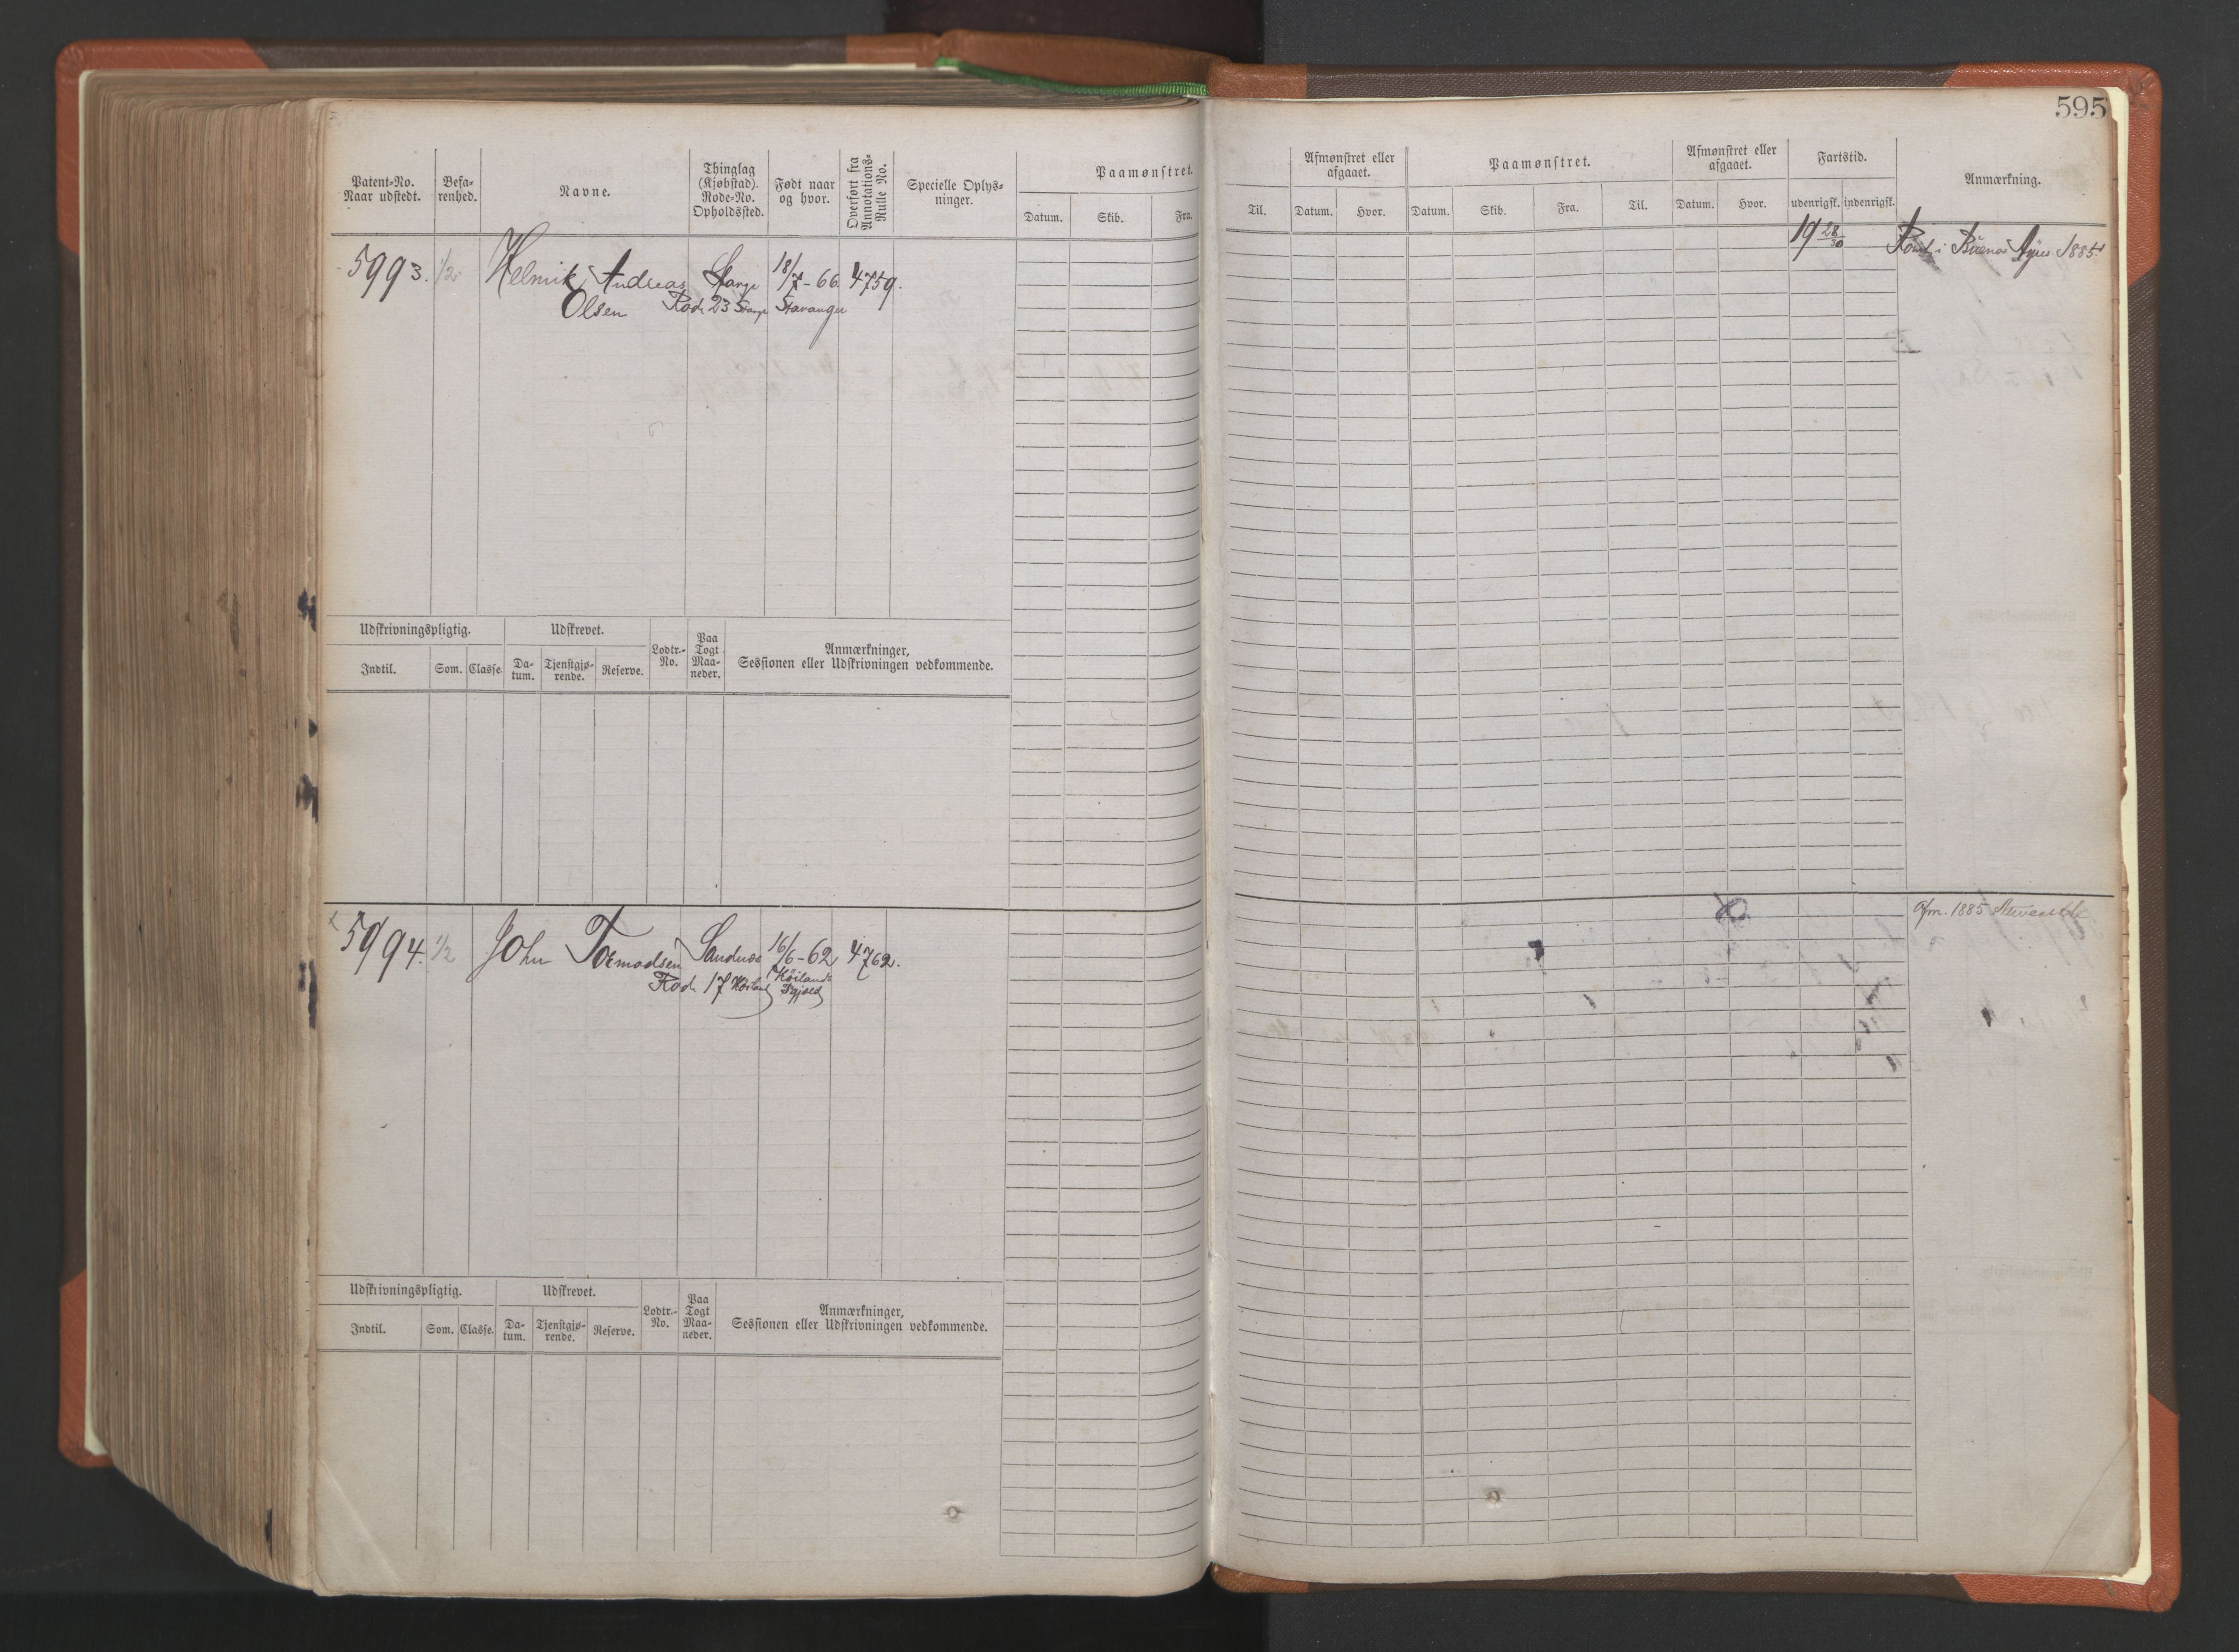 595
Patent-No.
Naar udstedt.
Befa-
renhed.
Navne.
Thinglag
(Kjøbstad).
Rode-No.
Opholdssted.
Født naar
og hvor.
Overført fra
Annotations-
Rulle No.
Specielle Oplys-
ninger.
Paamønstret.
Datum.
Skib.
Fra.
Til.
Afmønstret eller
afgaaet.
Datum.
Hvor.
Paamønstret.
Datum.
Skib.
Fra.
Til.
Afmønstret eller
afgaaet.
Datum.
Hvor.
Fartstid.
udenrigsk.
indenrigsk.
Anmærkning.
5993. 1/2 Helmik Andreas 18/7-66. 4759.
Olsen Rode 23 Stavanger
19 28/30
i Buenos Ayres 1885
Udskrivningspligtig.
Indtil.
Som.
Classe.
Udskrevet.
Da-
tum.
Tjenstgjø-
rende.
Reserve.
Lodtr.-
No.
Paa
Togt
Maa-
neder.
Anmærkninger,
Sessionen eller Udskrivningen vedkommende.
5994. 1/2 John Tormodsen Sandnes 16/6-62 4762.
Rode 17 Høiland Høiland
Afm. 1885
Udskrivningspligtig.
Indtil.
Som.
Classe.
Udskrevet.
Da-
tum.
Tjenstgjø-
rende.
Reserve.
Lodtr.-
No.
Paa
Togt
Maa-
neder.
Anmærkninger,
Sessionen eller Udskrivningen vedkommende.